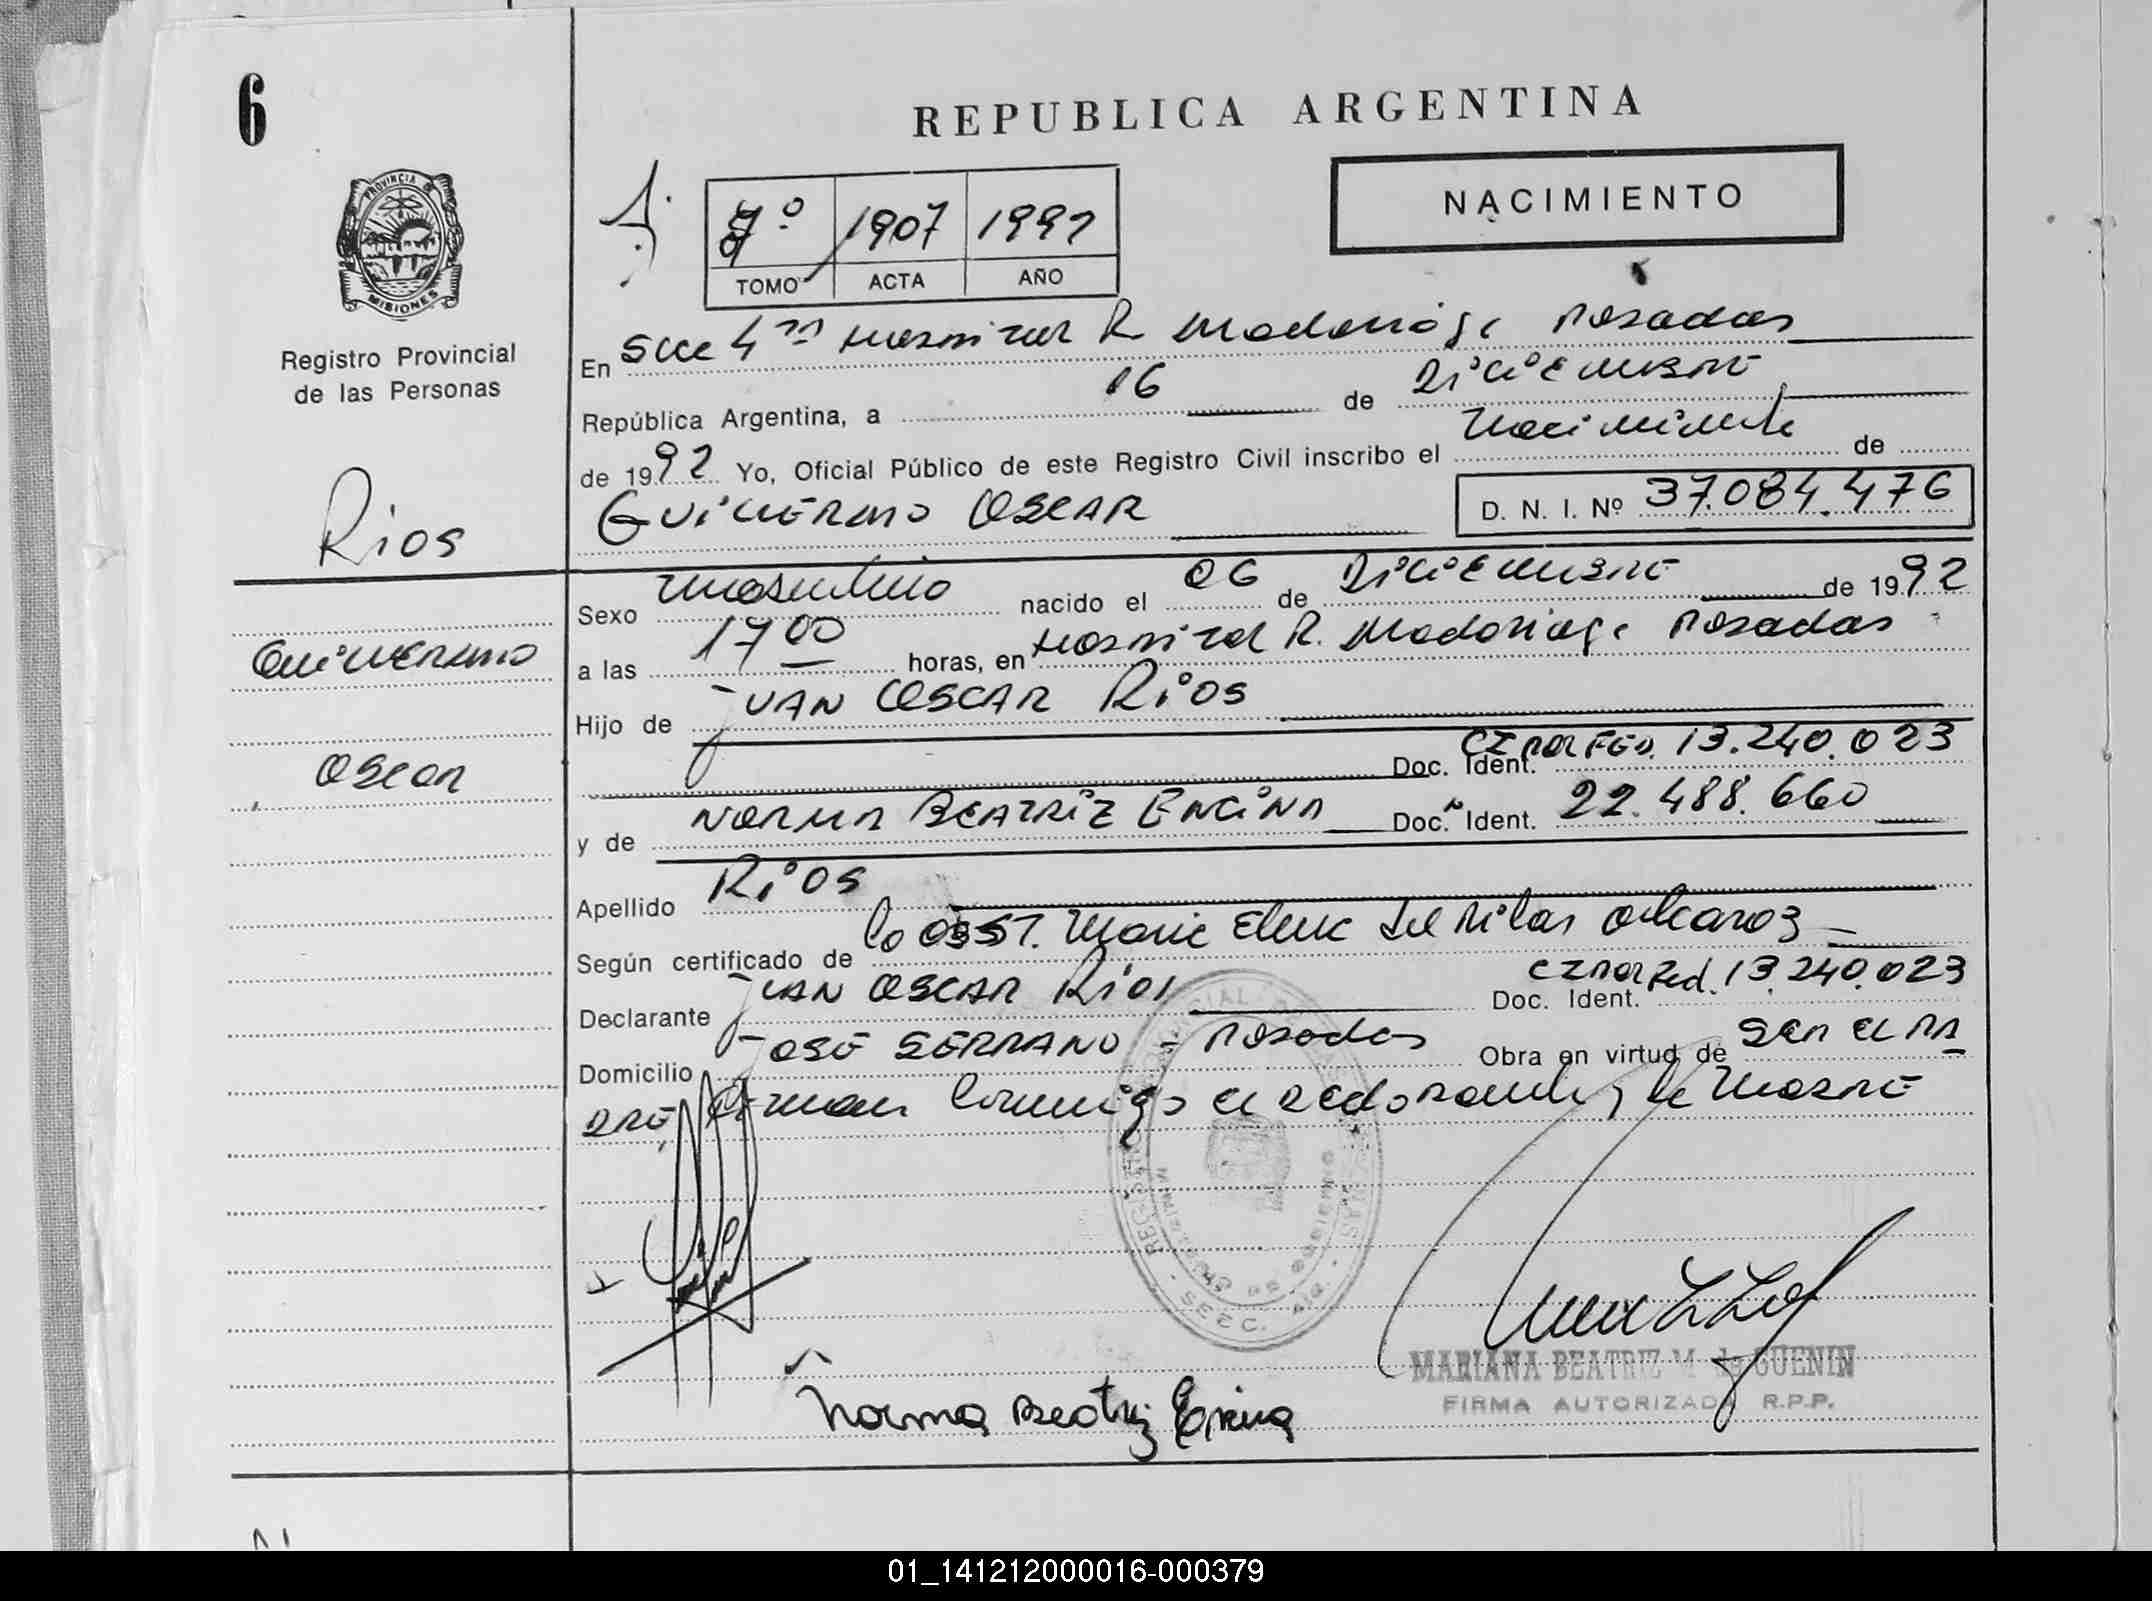 6
REPUBLICA ARGENTINA
PROVINCIA DE
MISIONES
Registro Provincial
de las Personas
NACIMIENTO
1907 1992
TOMO ACTA AÑO
En Secc 4ta Hospital R Madariaga Posadas
República Argentina, a 16 de Diciembre
de 1992 Yo, Oficial Público de este Registro Civil inscribo el Nacimiento de
Guillermo Oscar D. N. I. Nº 37.084.476
Rios
Guillermo
Oscar
Sexo Masculino nacido el 06 de Diciembre de 1992
a las 17 00 horas, en Hospital R. Madariaga Posadas
Hijo de Juan Oscar Rios
Doc. Ident. CI Pol Fed. 13.240.023
y de Norma Beatriz Encina Doc. Ident. 22.488.660
Apellido Rios
Según certificado de la Obst. Maria Elena del Pilar
Declarante Juan Oscar Rios Doc. Ident. CI Pol Fed. 13.240.023
Domicilio José Serrano - Posadas Obra en virtud de ser el pa
dre, firman conmigo el declarante y la madre
Norma Beatriz Encina
MARIANA BEATRIZ M. de GUENIN
FIRMA AUTORIZADA R.P.P.
01_141212000016-000379